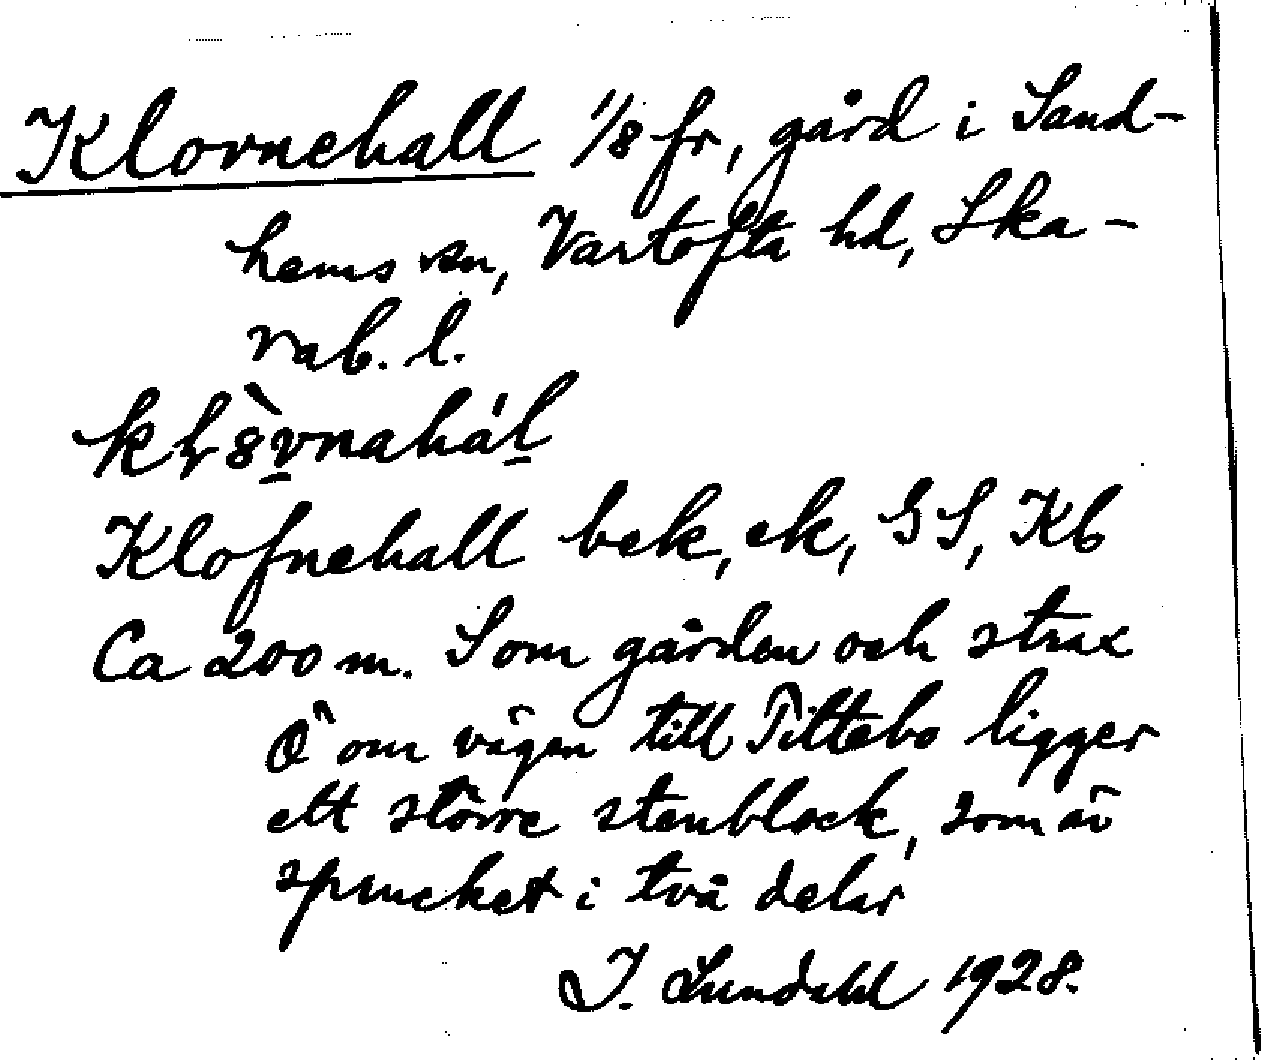 Klovnehall 1/8 fr, gård i Sand-
hems sn, Vartofta hd, Ska-
rab. l.
Klofnehall bek, ek, GS, Kb
Ca 200 m. S om gården och strax
Ö om vägen till Tittebo ligger
ett större stenblock, som är
sprucket i två delar
I. Lundahl 1928.